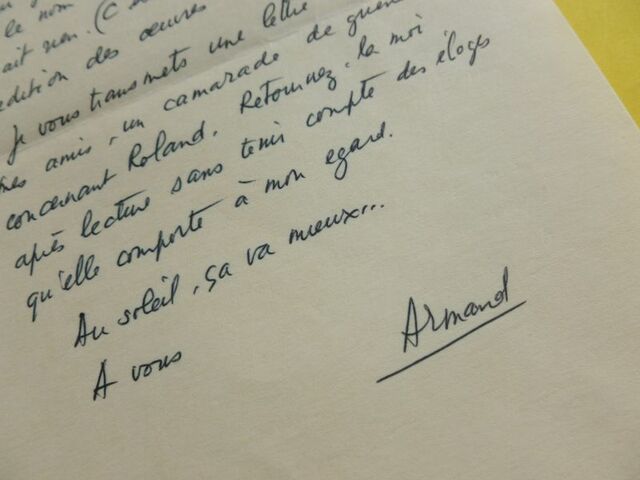 le nom
ait rien. (C
édition des œuvres
Je vous transmets une lettre
mes amis, un camarade de guerre
concernant Roland. Retournez-la moi
après lecture sans tenir compte des éloges
qu'elle comporte à mon egard.
Au soleil, ça va mieux...
A vous
Armand